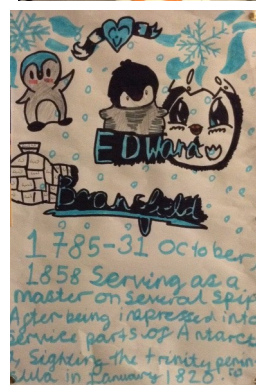 EDWard
Bransfield
1785-31 October
1858 Serving as a
master on several spips
After being inpressed into
service parts of Antarct
Sighting the trinity penin
sula in January 1820